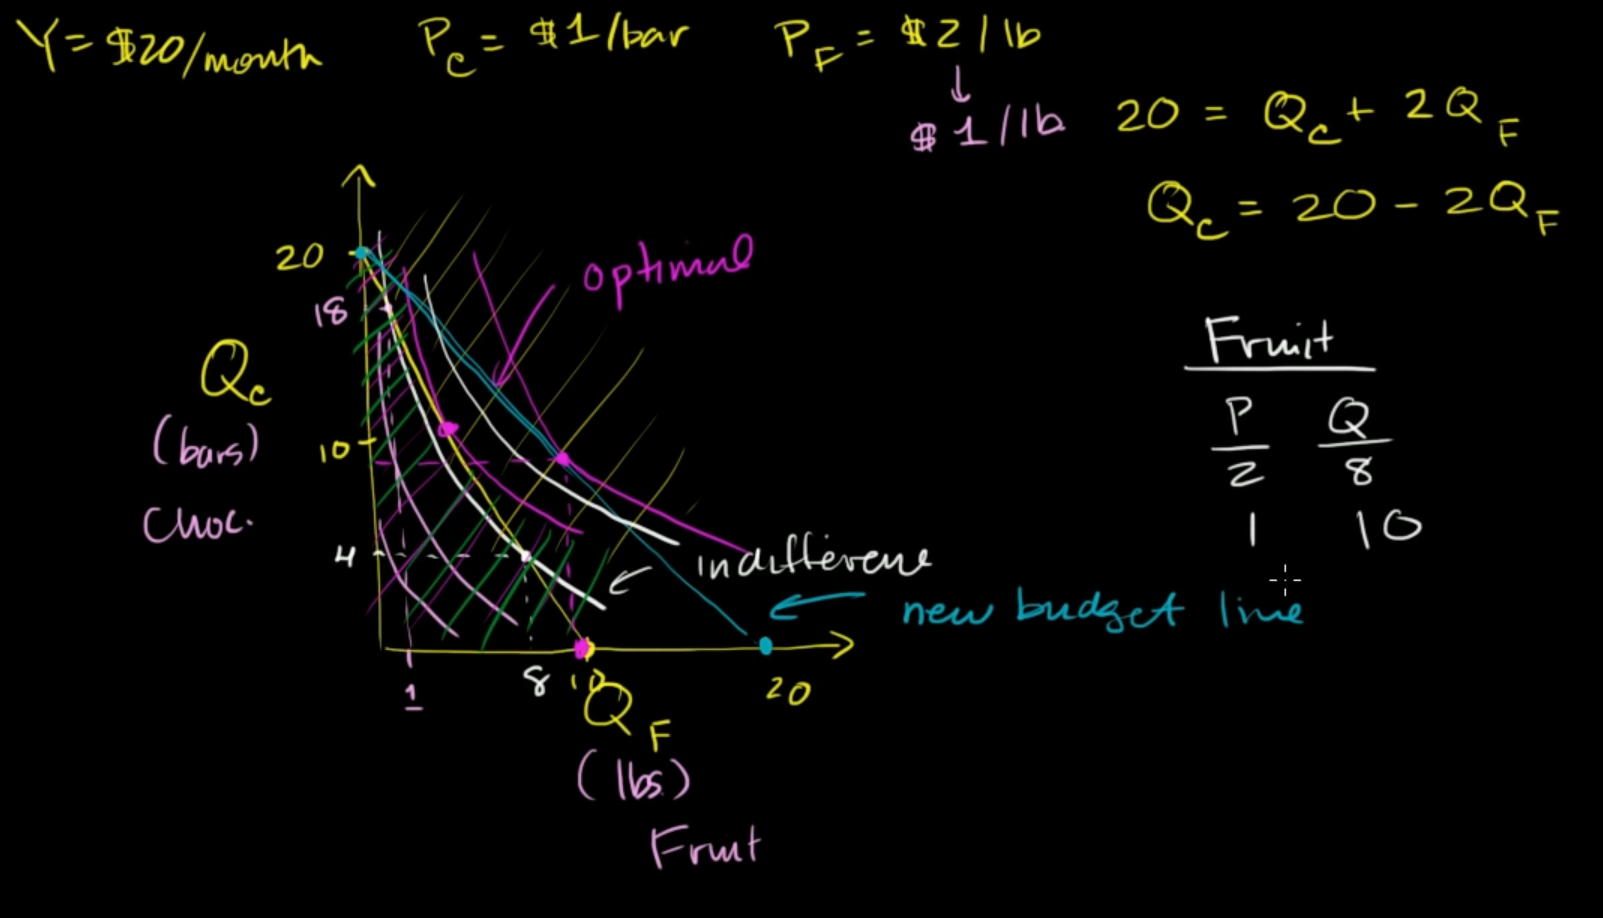 Y = $20/month
P_C = $1/bar
P_F = $2/lb
↓
$1/lb
20 = Q_C + 2Q_F
Q_C = 20 - 2Q_F
20
18
Q_C
(bars)
Choc.
10
4
optimal
indifference
new budget line
1
8
10
20
Q_F
(lbs)
Fruit
Fruit
P Q
2 8
1 10